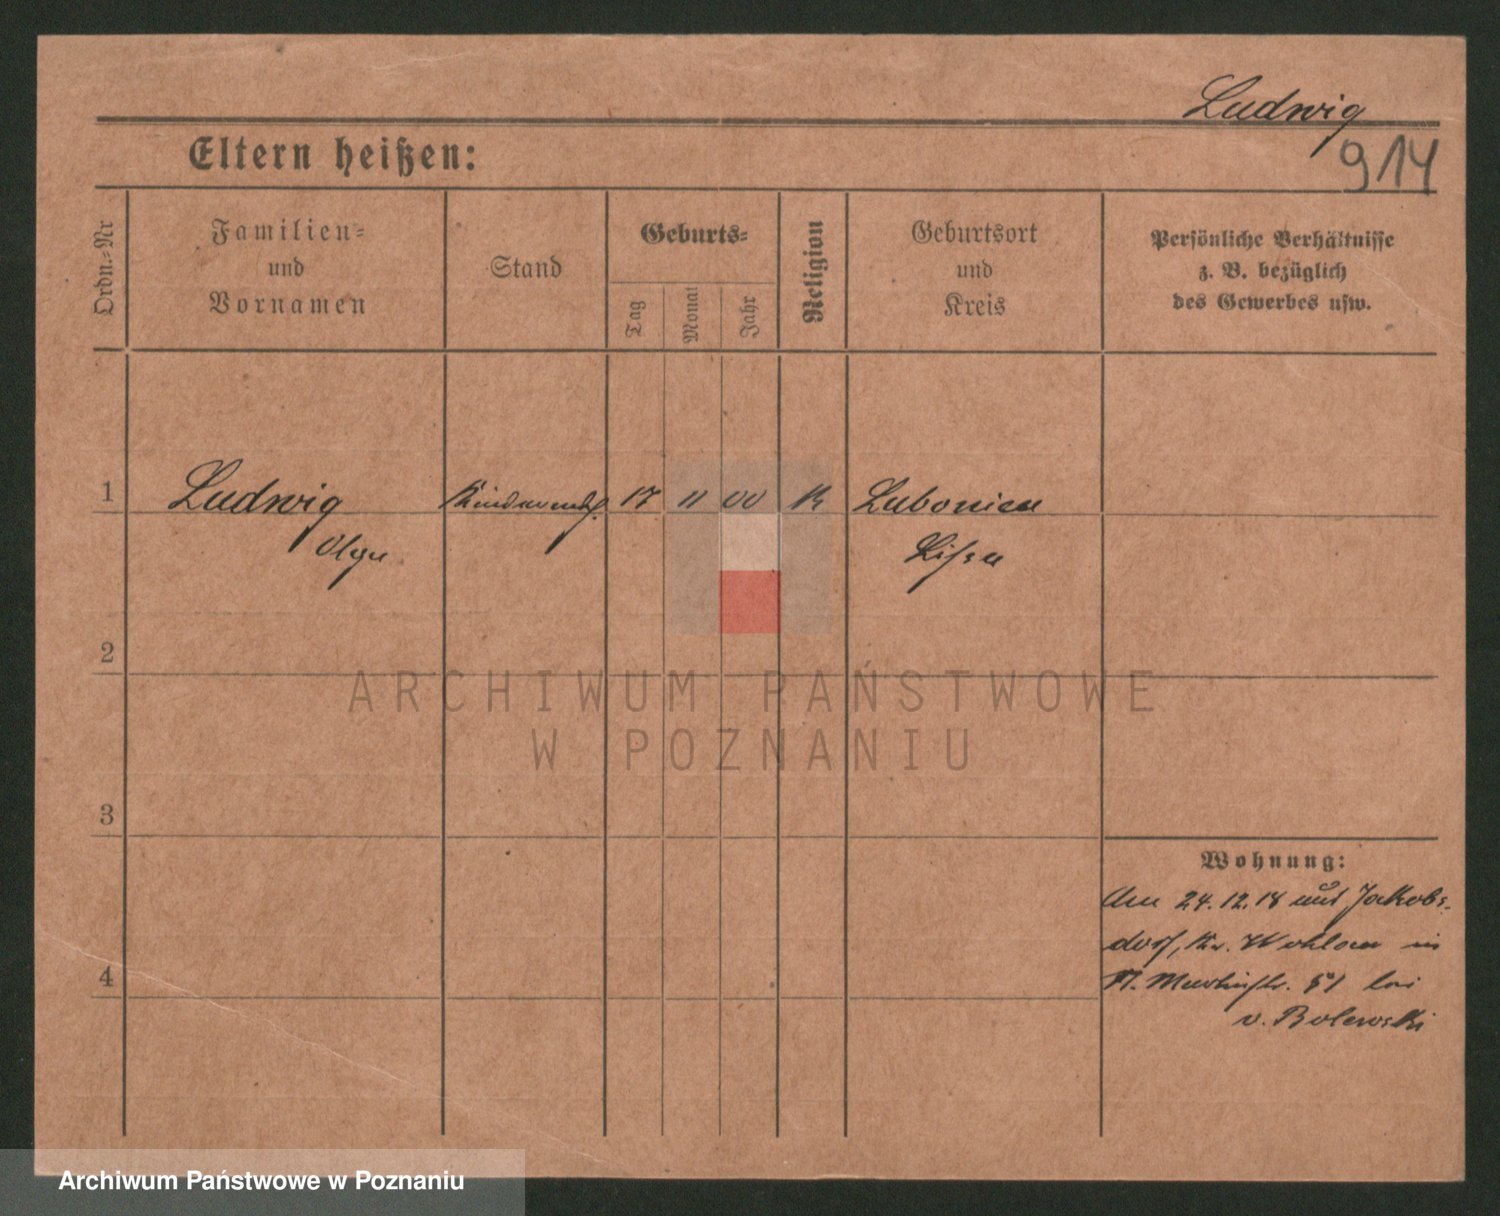 Ludwig
914
Eltern heißen:
Ordn.-Nr
Familien-
und
Vornamen
Stand
Geburts-
Tag
Monat
Jahr
Religion
Geburtsort
und
Kreis
Persönliche Verhältnisse
z. B. bezüglich
des Gewerbes usw.
1
Ludwig
17
11
00
K
Lubonica
Olga
Lissa
2
ARCHIWUM PAŃSTWOWE
W POZNANIU
3
Wohnung:
Am 24.12.18 aus Jakobs-
dorf, Kr. Wohlau in
St. Martinstr. 51 bei
v. Bolewski
4
Archiwum Państwowe w Poznaniu